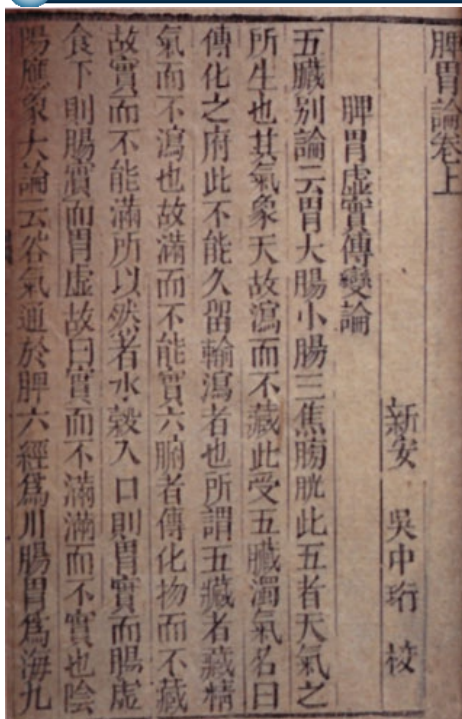 脾胃論卷上
新安　吳中珩　校
脾胃虛實傳變論
五臟别論云胃大腸小腸三焦膀胱此五者天氣之
所生也其氣象天故瀉而不藏此受五臟濁氣名曰
傳化之府此不能久留輸瀉者也所謂五藏者藏精
氣而不瀉也故滿而不能實六腑者傳化物而不藏
故實而不能滿所以然者水穀入口則胃實而腸虛
食下則腸實而胃虛故曰實而不滿滿而不實也陰
陽應象大論云谷氣通於脾六經爲川腸胃爲海九